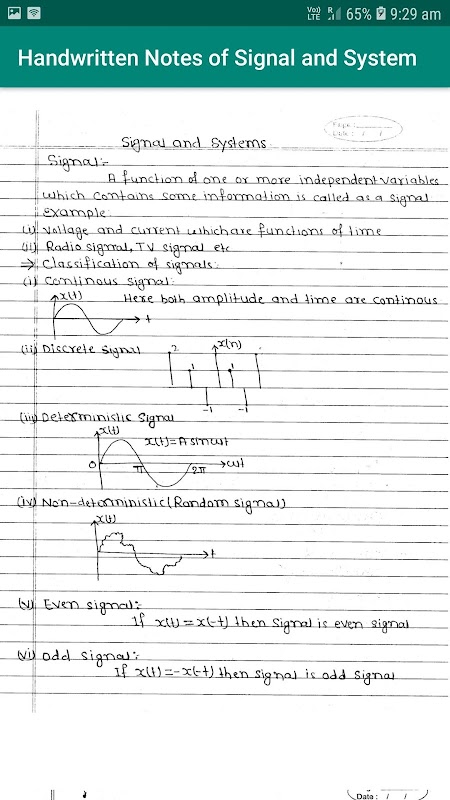 Vo)) LTE R 65% 9:29 am
Handwritten Notes of Signal and System
Page:
Date: / /
Signal and Systems
Signal:-
A function of one or more independent variables
which contains some information is called as a signal
Example:
(i) Voltage and current which are functions of time
(ii) Radio signal, TV signal etc
→ Classification of signals:
(i) Continous signal:
x(t) Here both amplitude and time are continous
t
(ii) Discrete signal 2 x(n)
1 1
-1 -1
(iii) Deterministic Signal
x(t)
x(t)=A sinωt
0 π 2π ωt
(iv) Non-deterministic (Random signal)
x(t)
t
(v) Even signal:-
If x(t) = x(-t) then signal is even signal
(vi) odd signal:-
If x(t) = -x(-t) then signal is odd signal
Date: / /